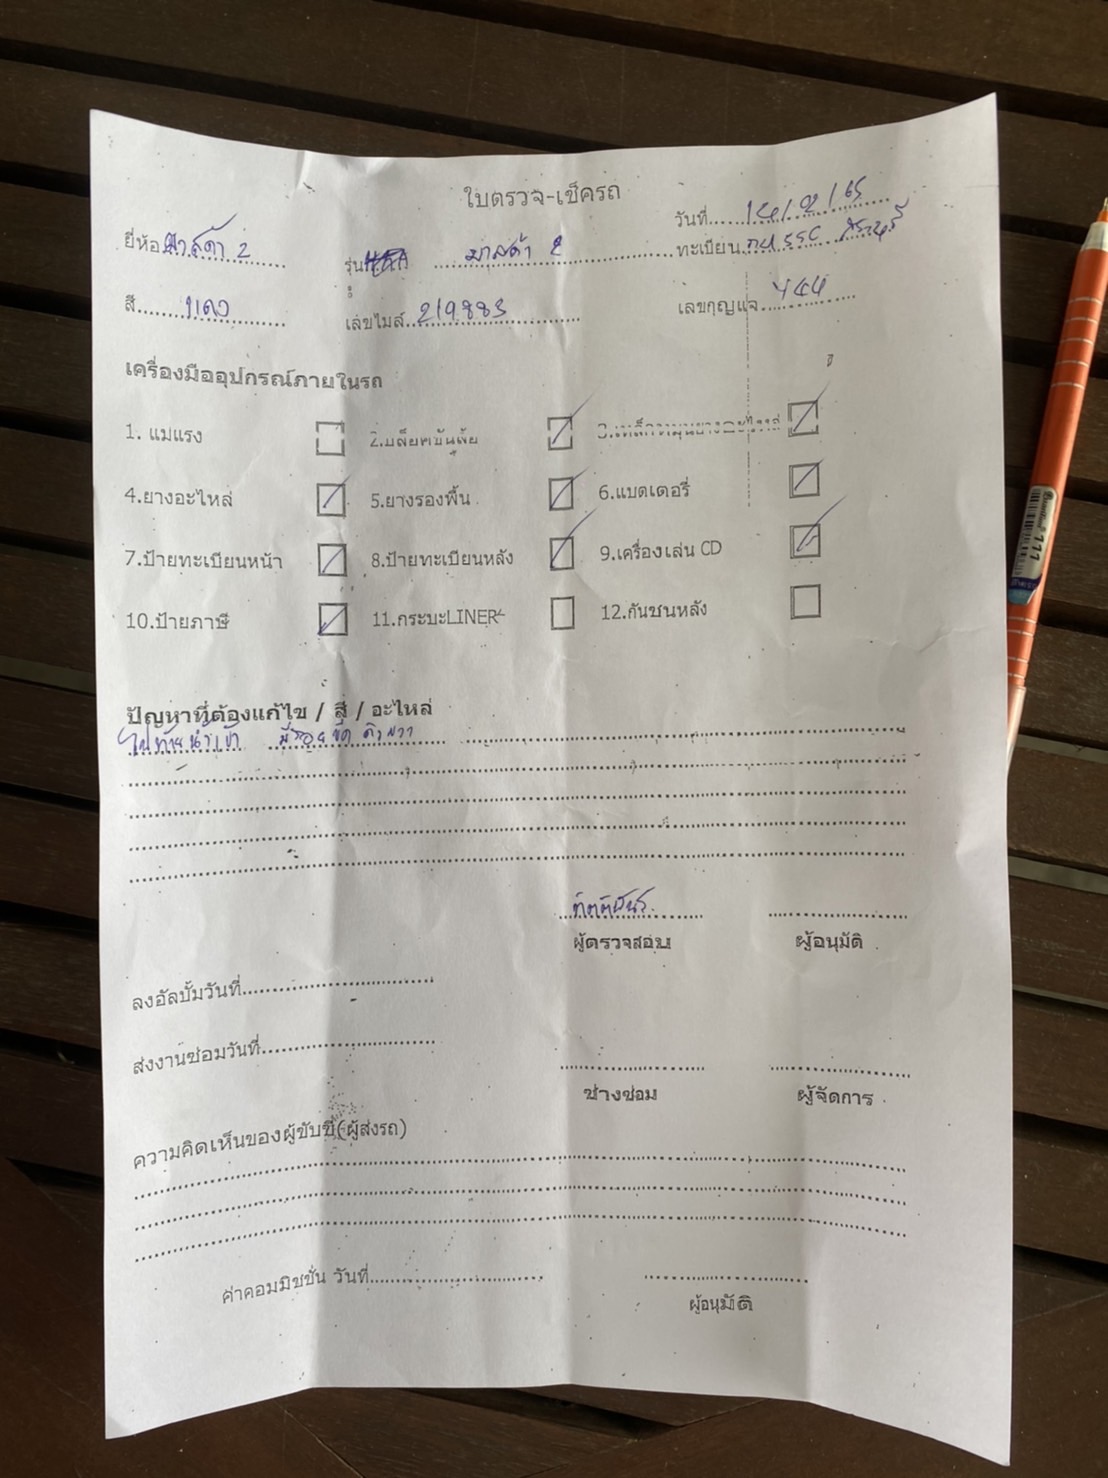 ใบตรวจ-เช็ครถ
วันที่....../02/65
ยี่ห้อ มาสด้า 2 รุ่น มาสด้า 2 ทะเบียน
สี แดง เลขไมล์ 219883 เลขกุญแจ 444
เครื่องมืออุปกรณ์ภายในรถ
1. แม่แรง 2.บล็อคขันล้อ
4.ยางอะไหล่ 5.ยางรองพื้น 6.แบตเตอรี่
7.ป้ายทะเบียนหน้า 8.ป้ายทะเบียนหลัง 9.เครื่องเล่น CD
10.ป้ายภาษี 11.กระบะLINER 12.กันชนหลัง
ปัญหาที่ต้องแก้ไข / สี / อะไหล่
มีรอยขีด
ผู้ตรวจสอบ ผู้อนุมัติ
ลงอัลบั้มวันที่
ส่งงานซ่อมวันที่
ช่างซ่อม ผู้จัดการ
ความคิดเห็นของผู้ขับขี่(ผู้ส่งรถ)
ค่าคอมมิชชั่น วันที่
ผู้อนุมัติ
111